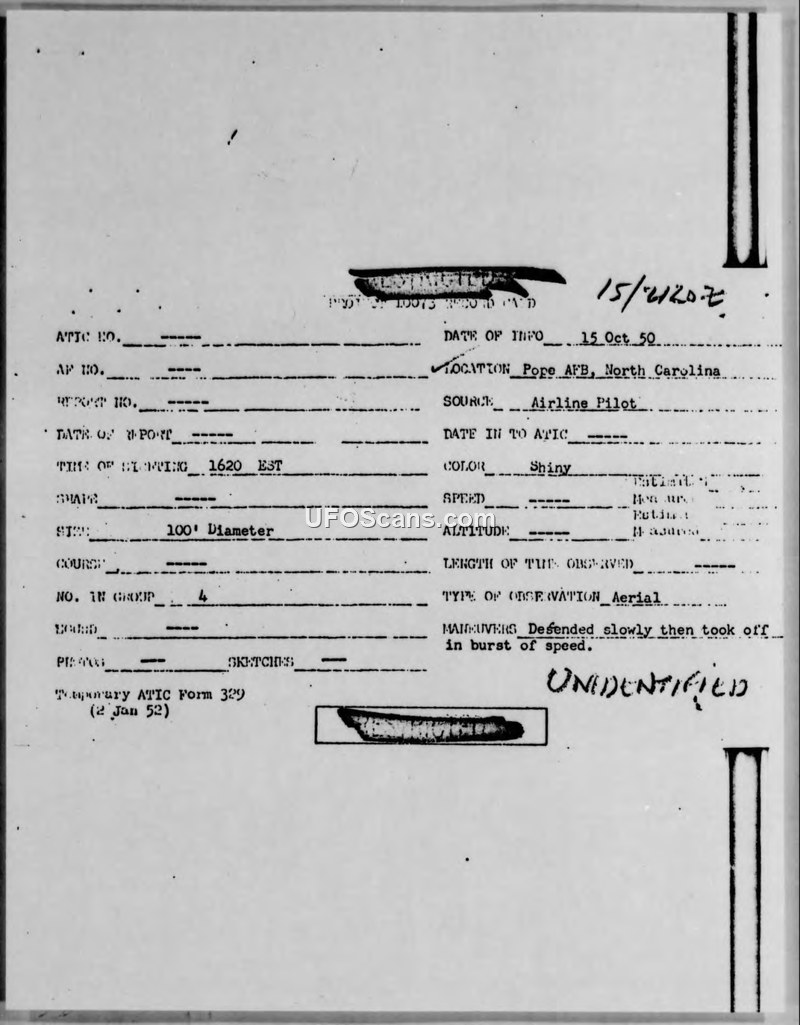 15/2120Z
RECORD CARD
ATIC NO. ----- DATE OF INFO 15 Oct 50
AF NO. ---- ✓LOCATION Pope AFB, North Carolina
REPORT NO. ----- SOURCE Airline Pilot
DATE OF REPORT ----- DATE IN TO ATIC -----
TIME OF SIGHTING 1620 EST COLOR Shiny
SHAPE ----- SPEED -----
SIZE 100' Diameter ALTITUDE -----
UFOScans.com
COURSE ----- LENGTH OF TIME OBSERVED -----
NO. IN GROUP 4 TYPE OF OBSERVATION Aerial
SOUND ---- MANEUVERS Desended slowly then took off
in burst of speed.
PHOTOS --- SKETCHES ---
UNIDENTIFIED
Temporary ATIC Form 329
(2 Jan 52)